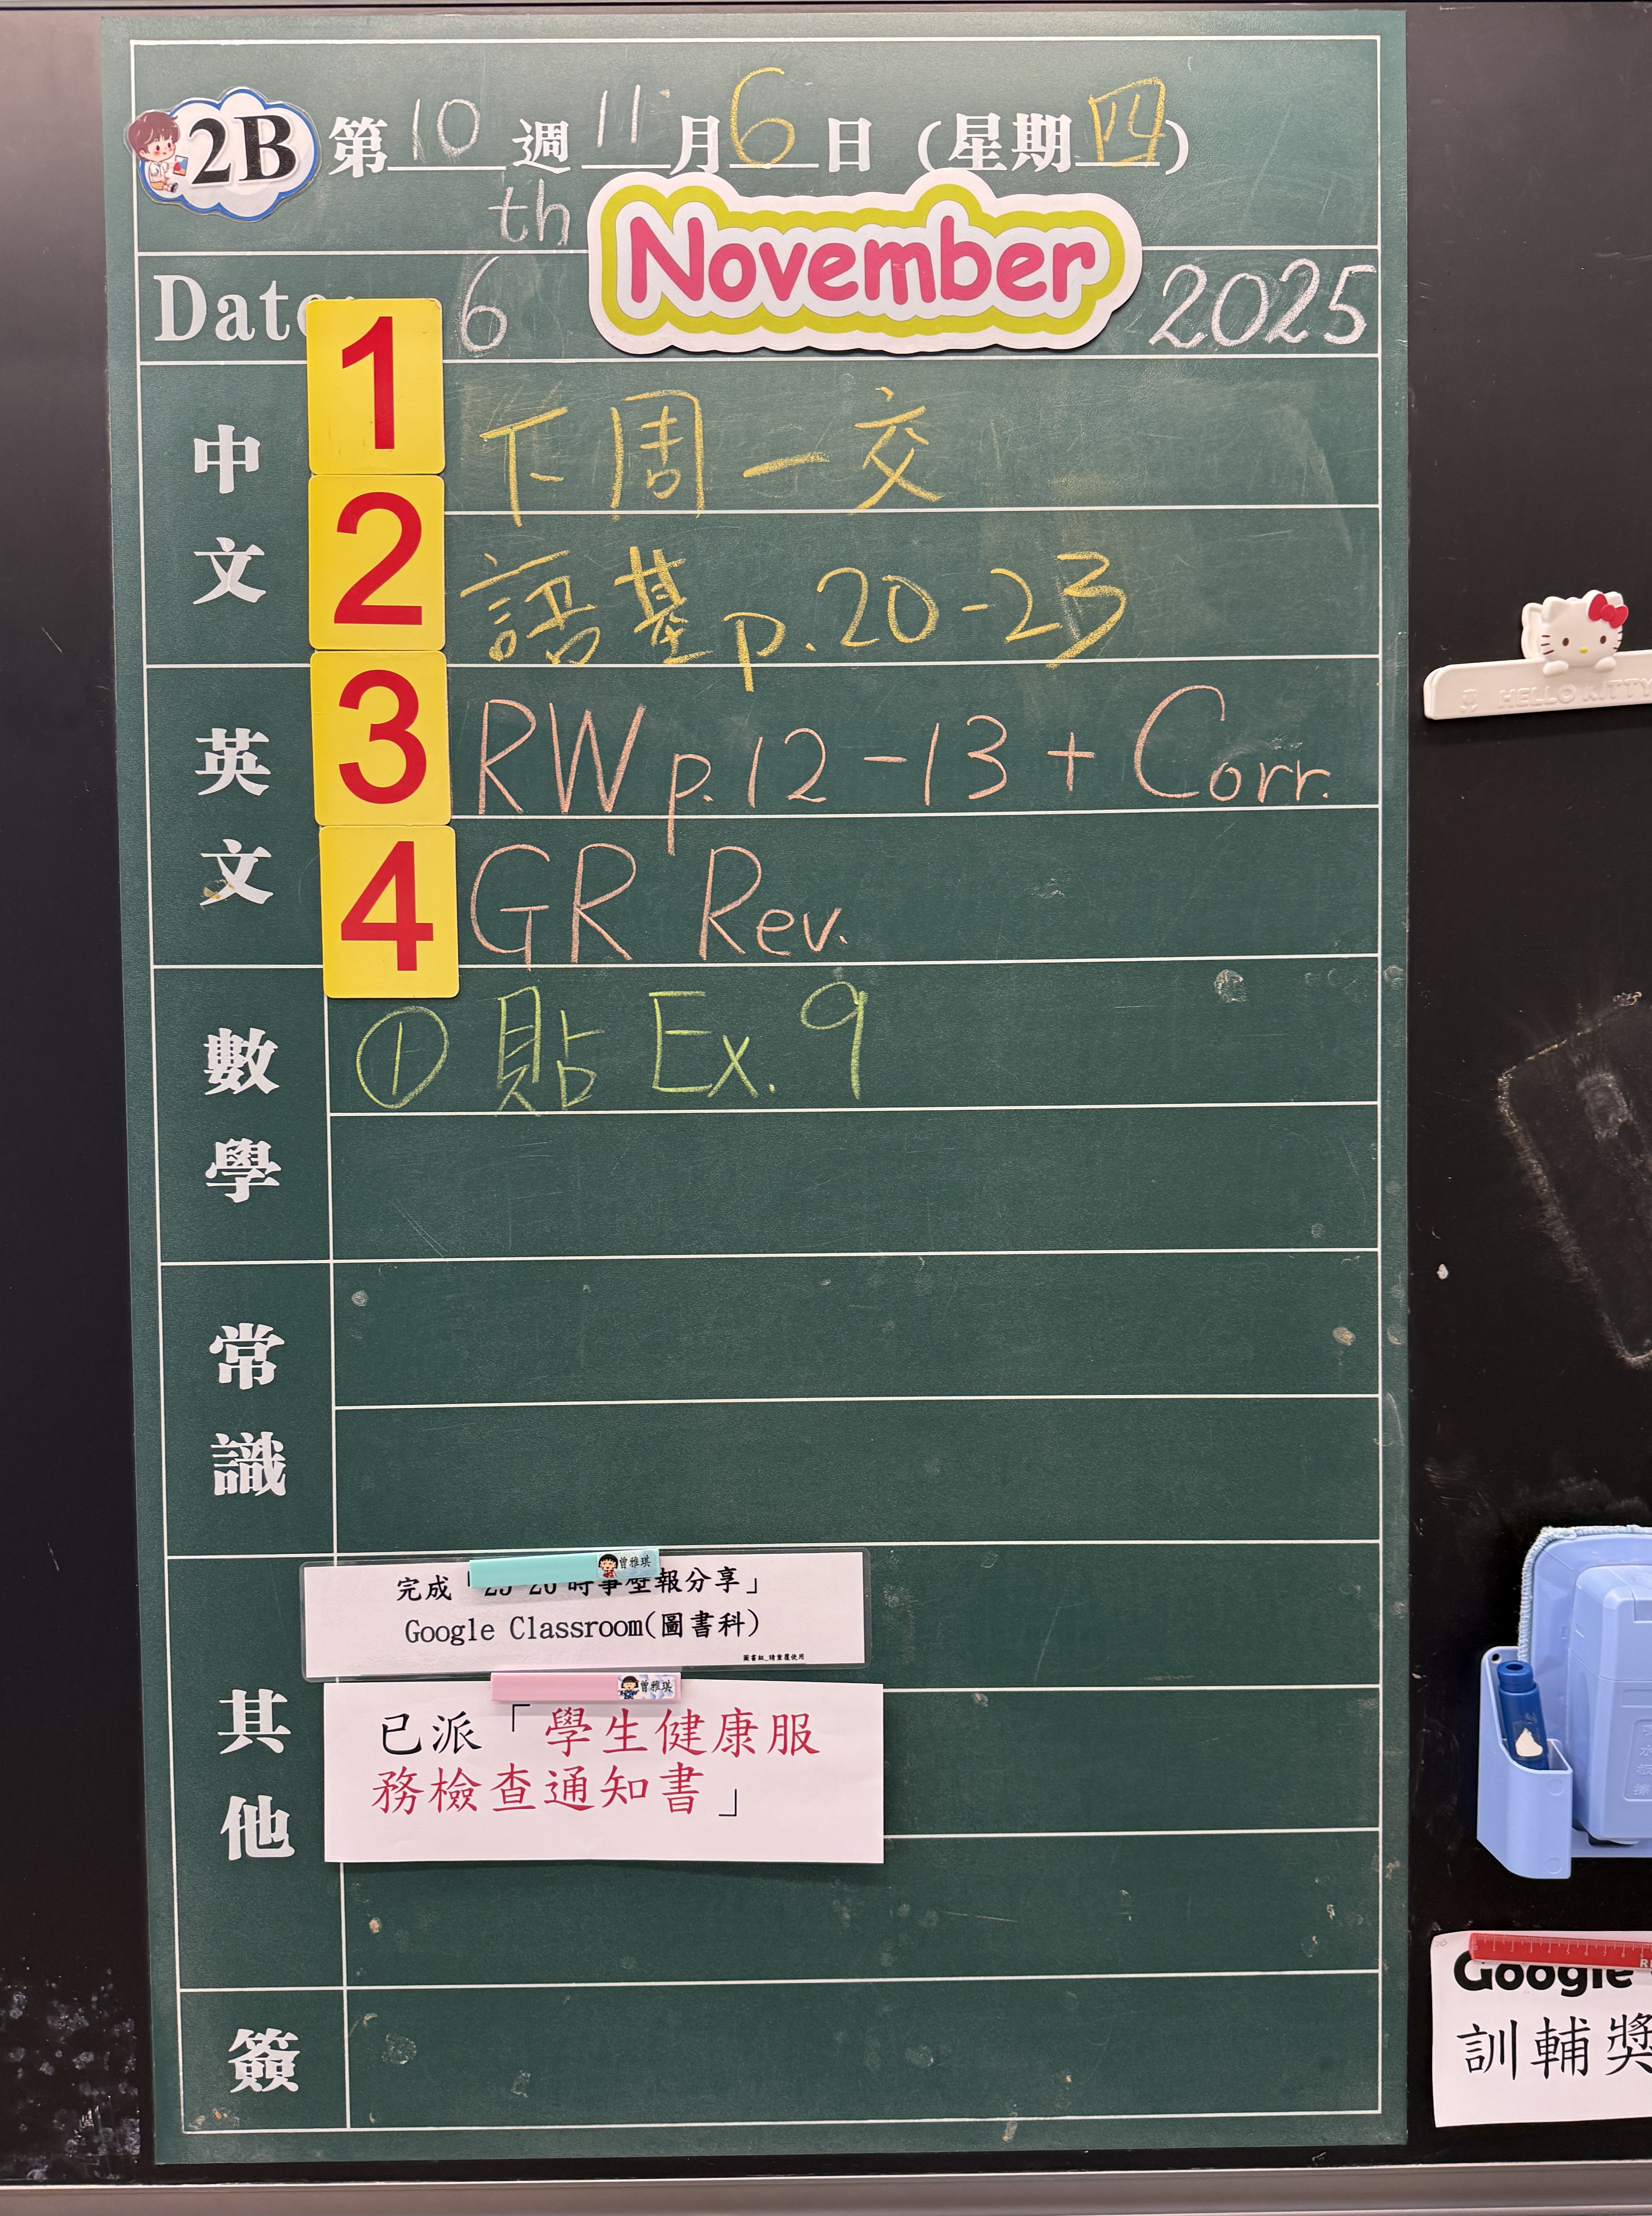 2B 第10週11月6日（星期四）
th
Date: 6 November 2025
中文
1 下周一交
2 語基p.20-23
英文
3 RW p.12-13 + Corr.
4 GR Rev.
數學
① 貼 Ex.9
常識
其他
曾雅琪
完成「25-26時事壁報分享」
Google Classroom(圖書科)
圖書組_請重覆使用
曾雅琪
已派「學生健康服
務檢查通知書」
簽
HELLO KITTY
Google
訓輔獎